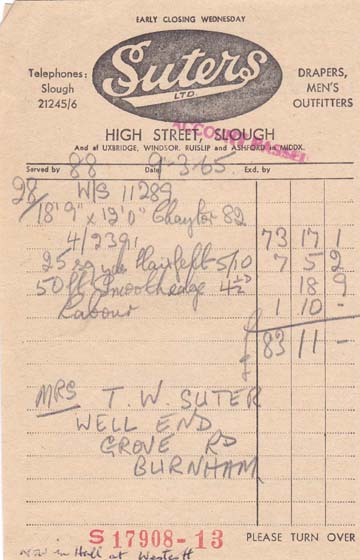 EARLY CLOSING WEDNESDAY
Telephones:
Slough
21245/6
Suters
LTD.
DRAPERS,
MEN'S
OUTFITTERS
HIGH STREET, SLOUGH
ACCOUNT PASSED
And at UXBRIDGE, WINDSOR, RUISLIP and ASHFORD in MIDDX.
Served by 88 Date 9-3-65 Exd. by
28 W/S 11289
18'9" x 12'0" Chaytor 82
4/2391 73 17 1
25 sq yds Hairfelt 5/10 7 5 2
50 ft Smoothedge 4½D 18 9
Labour 1 10 -
£ 83 11 -
MRS T. W. SUTER
WELL END
GROVE RD
BURNHAM
S 17908-13 PLEASE TURN OVER
now in Hall at